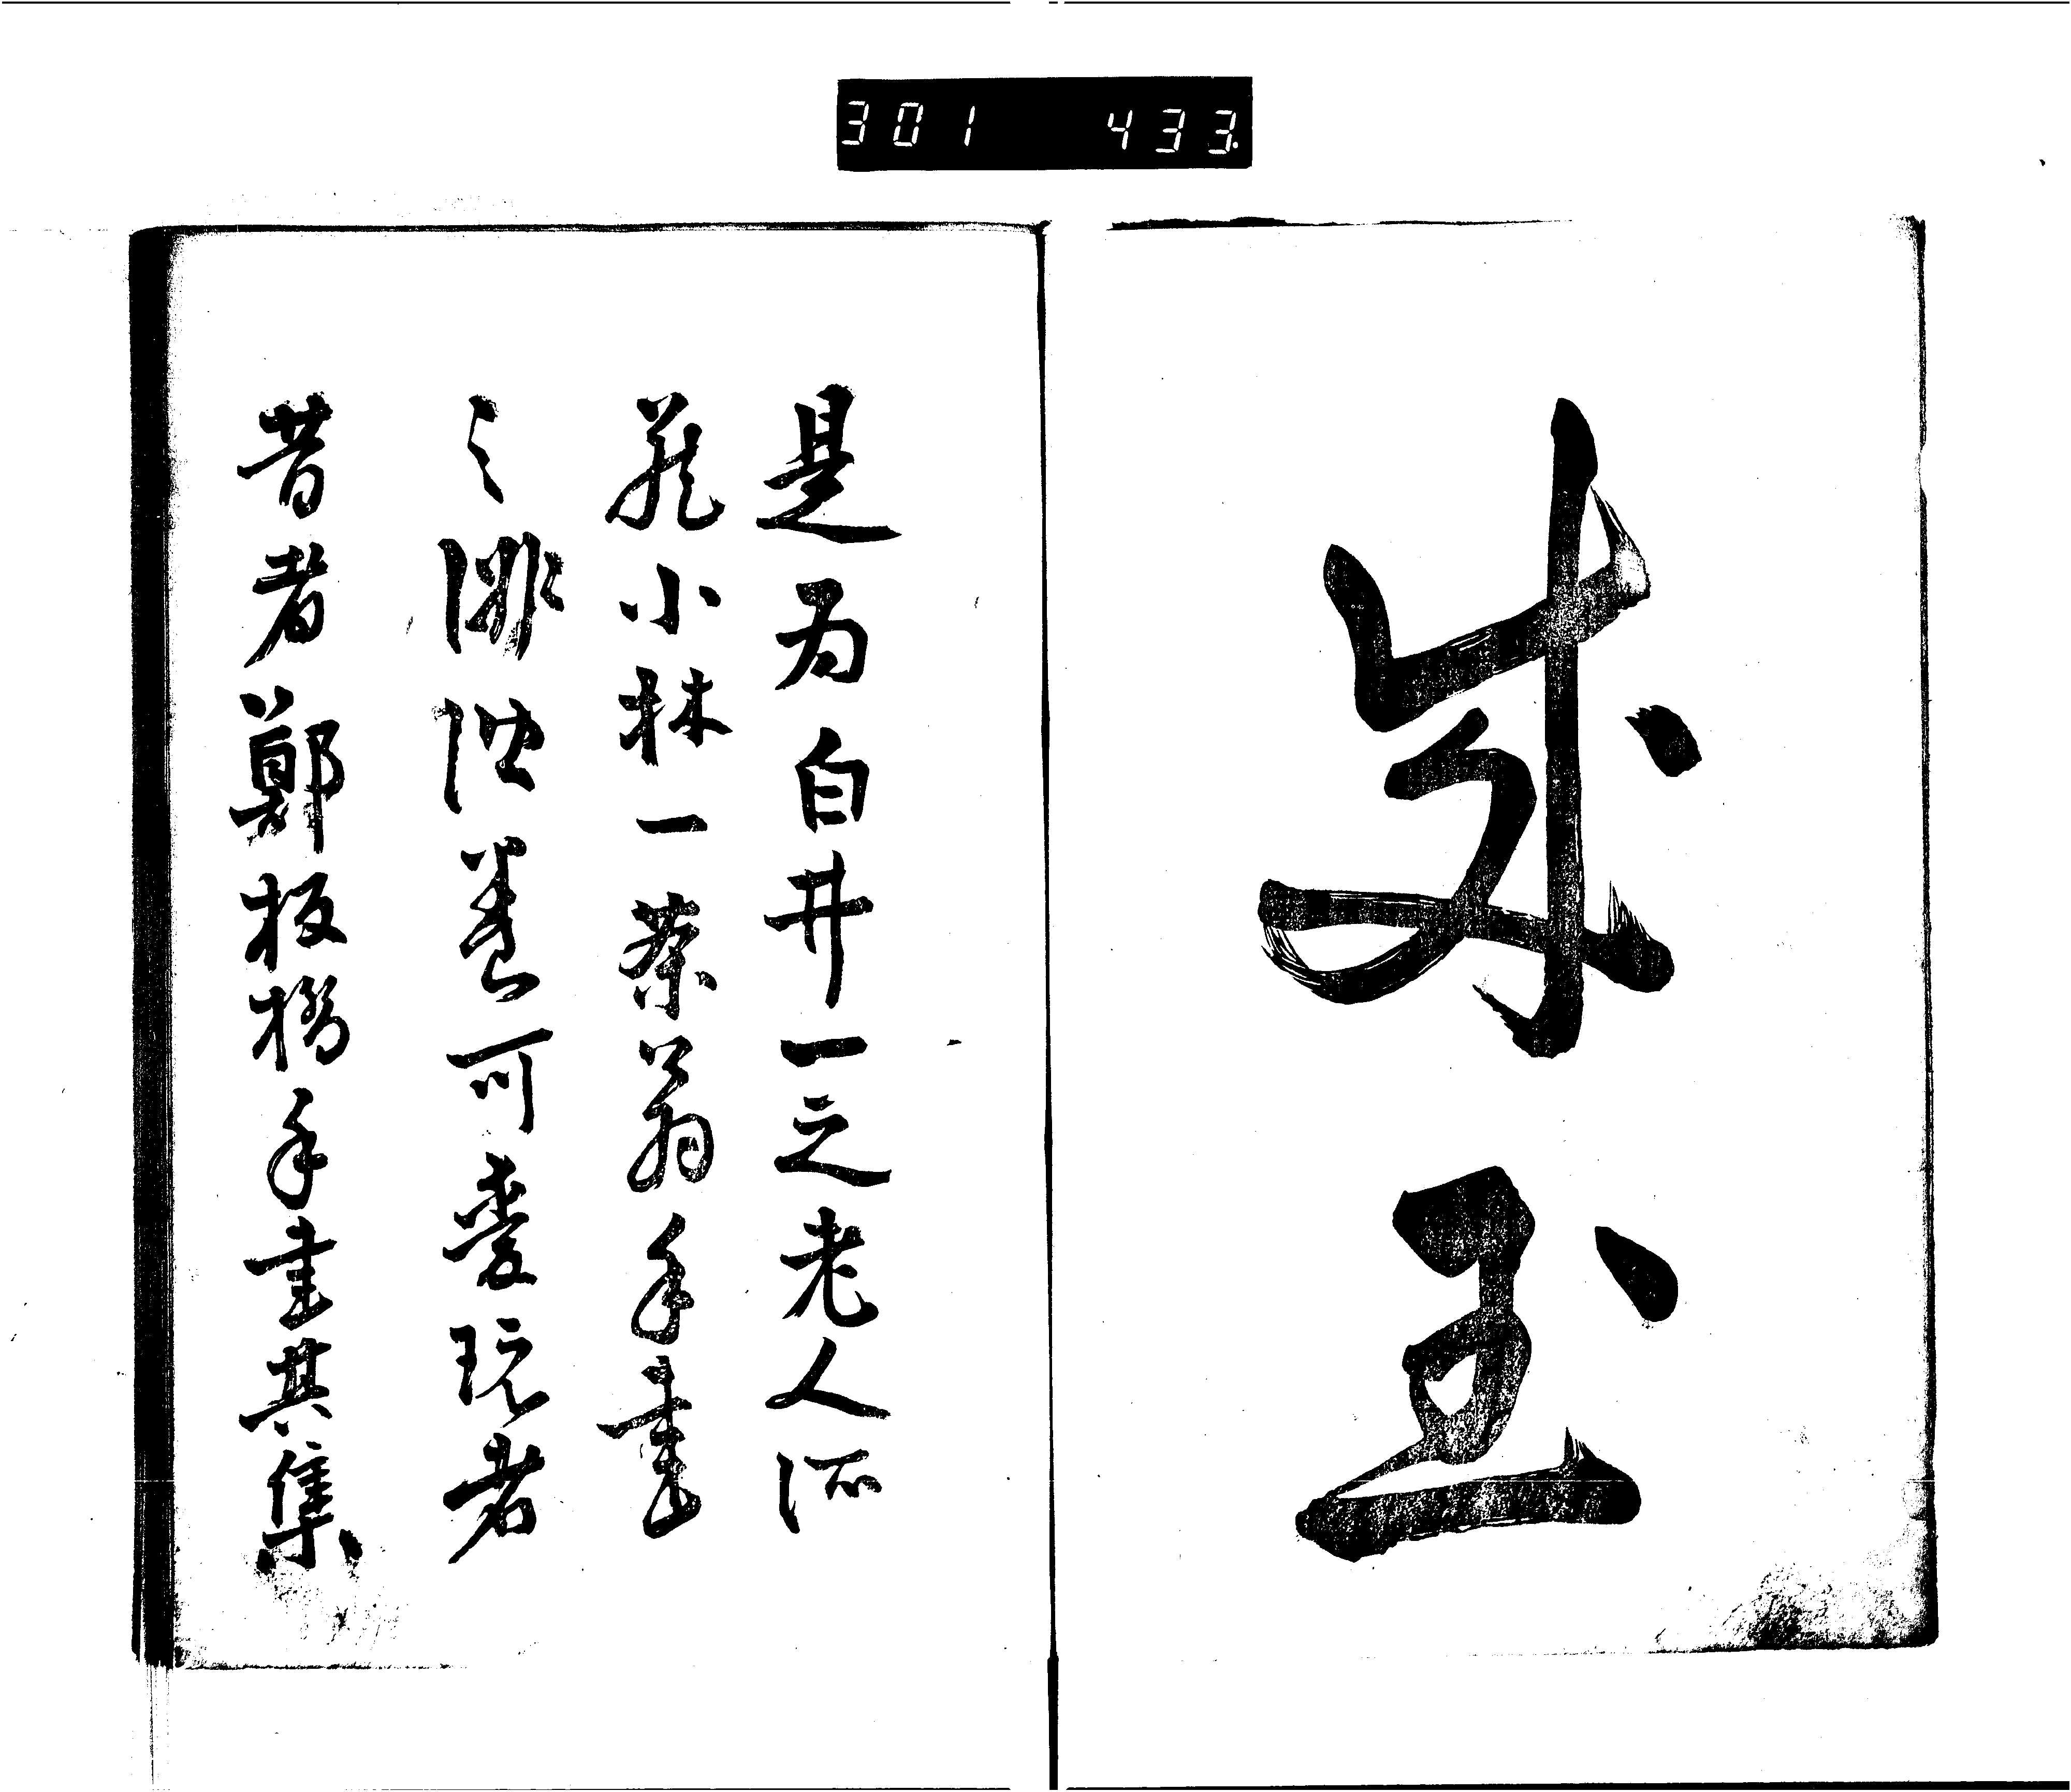 玉
是為白井一之老人所
蔵小林一茶翁手書
之誹諧巻可愛玩者
昔者鄭板橋手書其集
301 433.